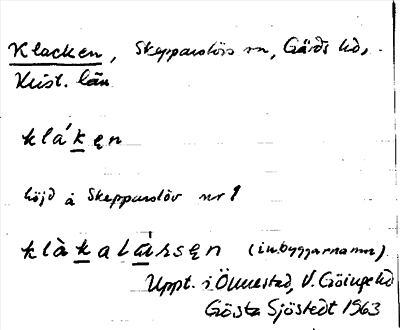 Klacken, Skepparslövs sn, Gärds hd,
Krist. län
klákęn
höjd å Skepparslöv nr 1
klàkalársęn (inbyggarnamn)
Uppt. i Önnestad, V. Göinge hd
Gösta Sjöstedt 1963